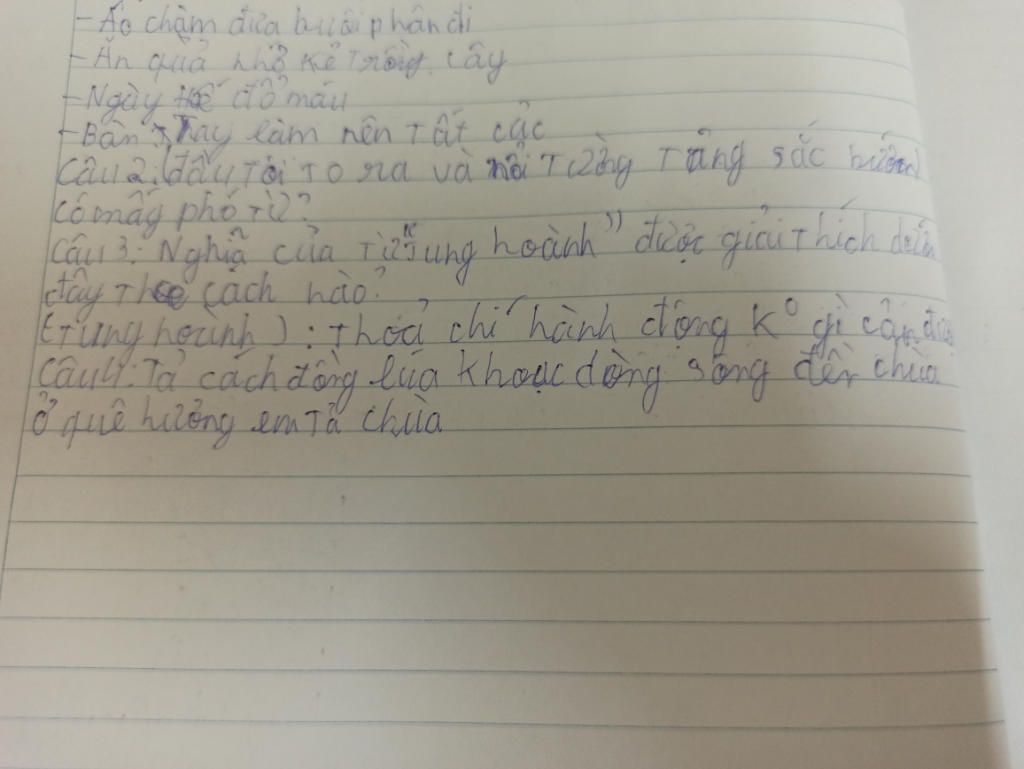 - Áo chàm đưa buổi phân đi
- Ăn quả nhở kẻ trồng cây
- Ngày đổ máu
- Bàn Tay làm nên tất các
Câu 2: Đầu tôi to ra và nổi từng tảng sắc hướn
có mấy phó từ?
Câu 3: Nghĩã của từ "Tung hoành" được giải thích dưới
đây cách nào?
(tung hoành): thoả chí hành động k° gì cản được
Câu 4: Tả cách đồng lúa khoặc dòng sông đền chùa
ở quê hưởng em tả chùa